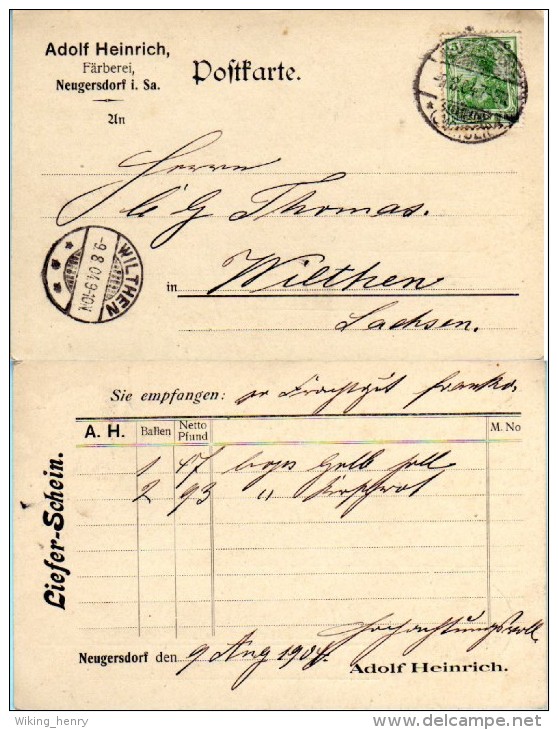 Adolf Heinrich,
Färberei,
Neugersdorf i. Sa.
Postkarte.
An
Herrn
C G Thomas.
in Wilthen
Sachsen.
WILTHEN
-9.8.04.9-10V.
Sie empfangen: per Frachtgut franko.
A. H. Ballen Netto Pfund M. No
1 47 Gelb
2 93 "
Liefer-Schein.
Hochachtungsvoll
Neugersdorf den 9 Aug 1904.
Adolf Heinrich.
Wiking_henry
www.delcampe.net